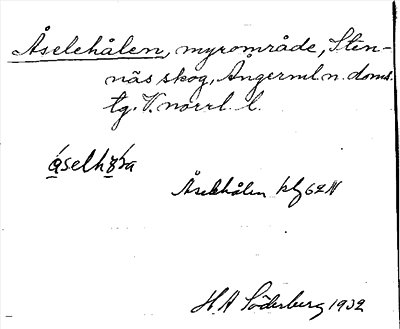 Åselehålen, myrområde, Sten-
näs skog, Ångerml. n. doms.
tg. V. norrl. l.
åselhɷ́ɹa
Åselehålen kbl 62 N
H. A Söderberg 1932